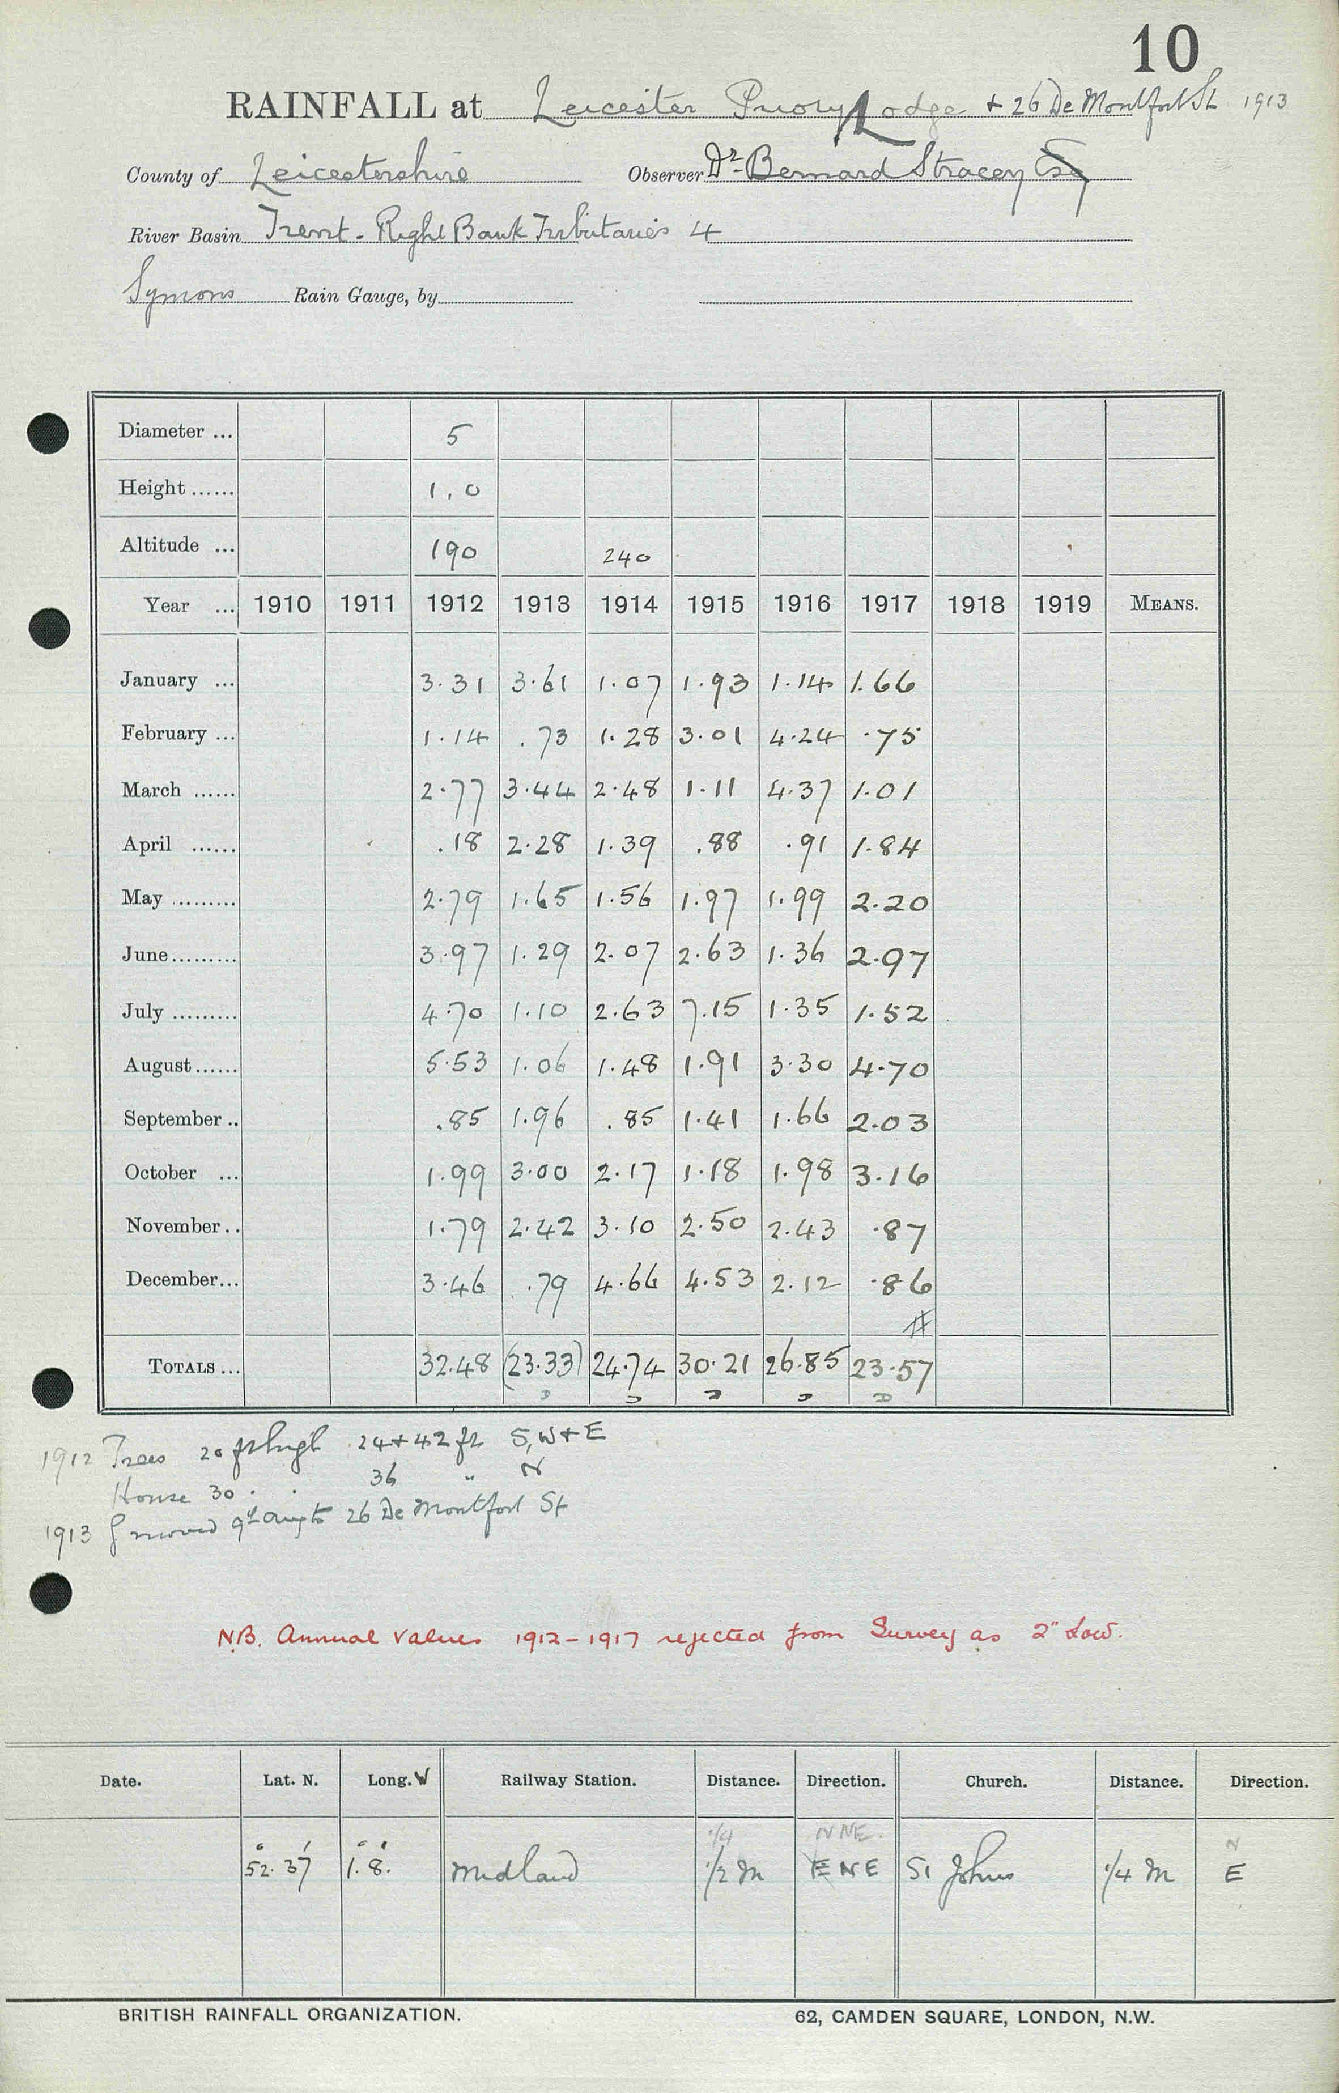 10
RAINFALL at Leicester Priory Lodge + 26 De Montfort St 1913
County of Leicestershire Observer Dr Bernard Stracey Esq
River Basin Trent - Right Bank Tributaries 4
Symons Rain Gauge, by
Diameter ... 5
Height ...... 1.0
Altitude ... 190 240
Year ... 1910 1911 1912 1913 1914 1915 1916 1917 1918 1919 MEANS.
January ... 3.31 3.61 1.07 1.93 1.14 1.66
February ... 1.14 .73 1.28 3.01 4.24 .75
March ...... 2.77 3.44 2.48 1.11 4.37 1.01
April ...... .18 2.28 1.39 .88 .91 1.84
May ......... 2.79 1.65 1.56 1.97 1.99 2.20
June......... 3.97 1.29 2.07 2.63 1.36 2.97
July ......... 4.70 1.10 2.63 7.15 1.35 1.52
August...... 5.53 1.06 1.48 1.91 3.30 4.70
September .. .85 1.96 .85 1.41 1.66 2.03
October ... 1.99 3.00 2.17 1.18 1.98 3.16
November .. 1.79 2.42 3.10 2.50 2.43 .87
December... 3.46 .79 4.66 4.53 2.12 .86
TOTALS ... 32.48 (23.33) 24.74 30.21 26.85 23.57
1912 Trees 20 ft high 24 + 42 ft S, W + E
House 30 . . 36 " N
1913 G moved 9th Aug to 26 De Montfort St
N.B. Annual Values 1912-1917 rejected from Survey as 2" Low.
Date. Lat. N. Long. W Railway Station. Distance. Direction. Church. Distance. Direction.
1/4 NNE. N
52° 37' 1° 8' Midland 1/2 M ENE St Johns 1/4 M E
BRITISH RAINFALL ORGANIZATION. 62, CAMDEN SQUARE, LONDON, N.W.